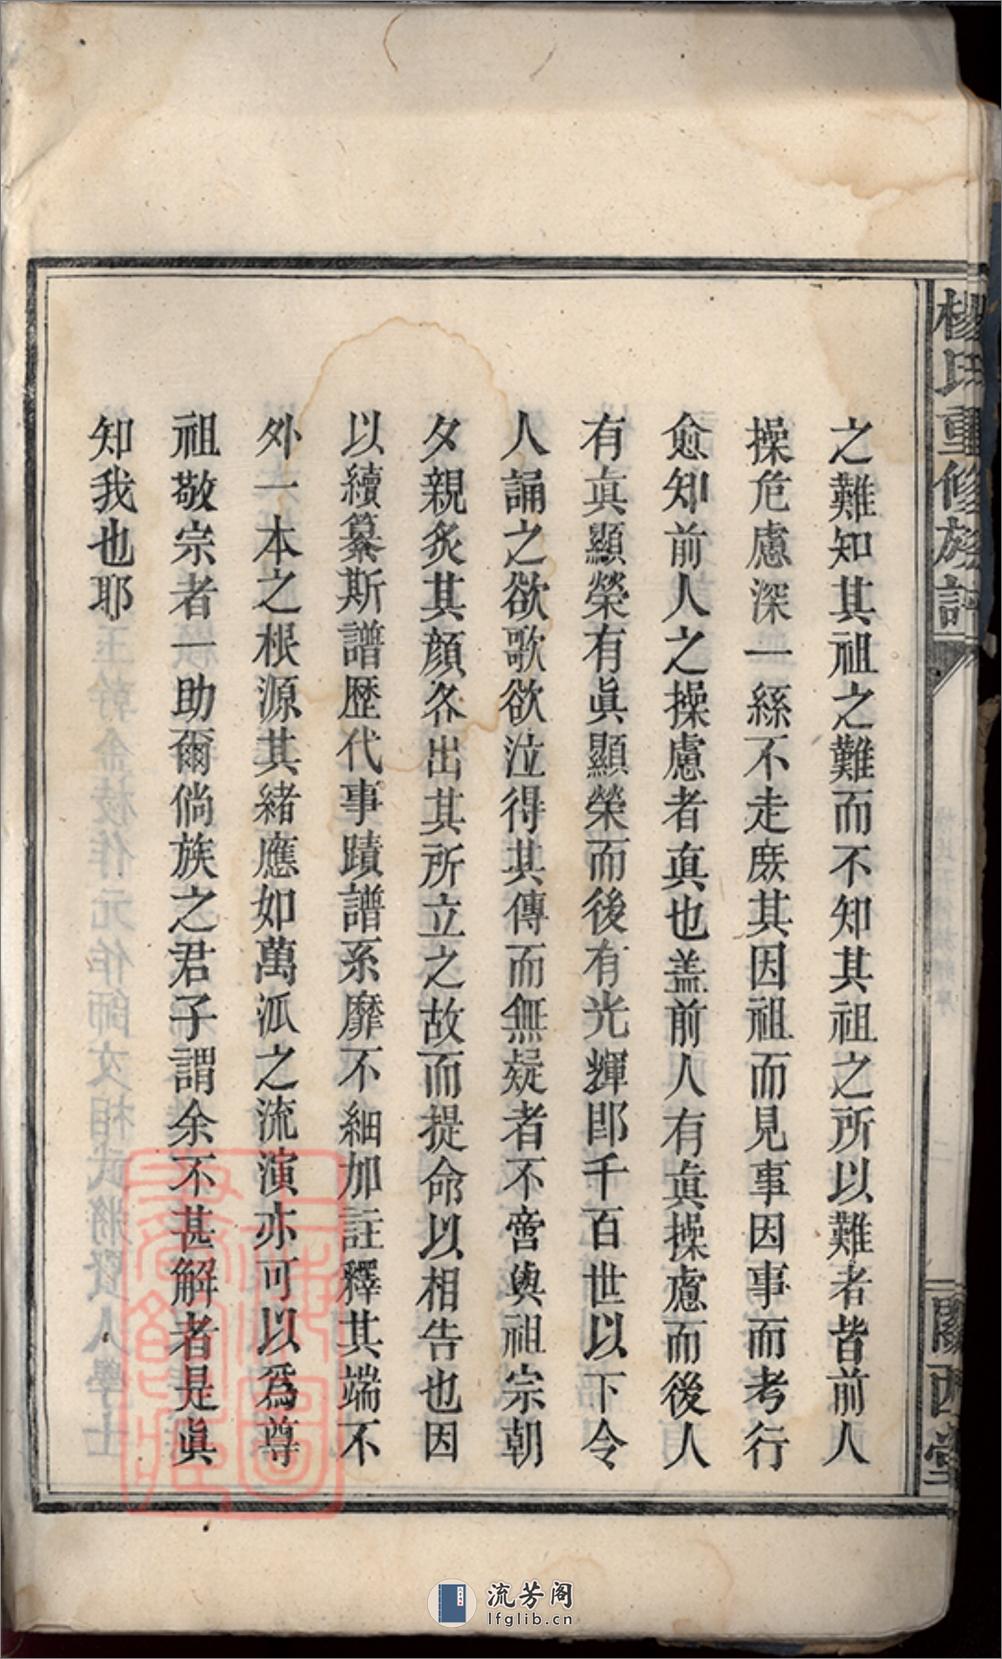 楊氏重修族譜
關西堂
之難知其祖之難而不知其祖之所以難者皆前人
操危慮深一絲不走庶其因祖而見事因事而考行
愈知前人之操慮者眞也盖前人有眞操慮而後人
有眞顯榮有眞顯榮而後有光輝即千百世以下令
人誦之欲歌欲泣得其傳而無疑者不啻與祖宗朝
夕親炙其顔各出其所立之故而提命以相告也因
以續纂斯譜歷代事蹟譜系靡不細加註釋其端不
外一本之根源其緒應如萬派之流演亦可以爲尊
祖敬宗者一助爾倘族之君子謂余不甚解者是眞
知我也耶
上海圖書館藏
流芳阁
lfglib.cn